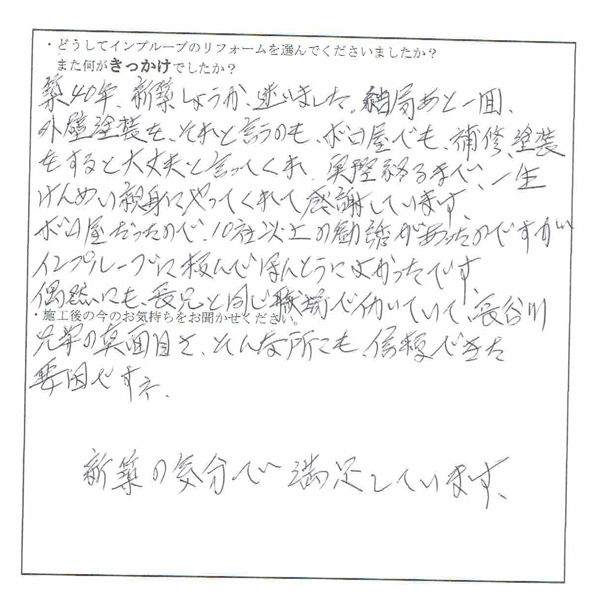 ・どうしてインプルーブのリフォームを選んでくださいましたか?
また何がきっかけでしたか?
築40年、新築しょうか、迷いました。結局あと一回、
外壁塗装を、それと言うのも、ボロ屋でも、補修、塗装
をすると大丈夫と言ってくれ、実際終るまで、一生
けんめい親身にやってくれて感謝しています、
ボロ屋だったので、10社以上の勧誘があったのですが
インプルーブに頼んでほんとうによかったです、
偶然にも、長兄と同じ職場で働いていて、長谷川
・施工後の今のお気持ちをお聞かせください。
兄弟の真面目さ、そんな所にも、信頼できた
要因ですネ、
新築の気分で満足しています、